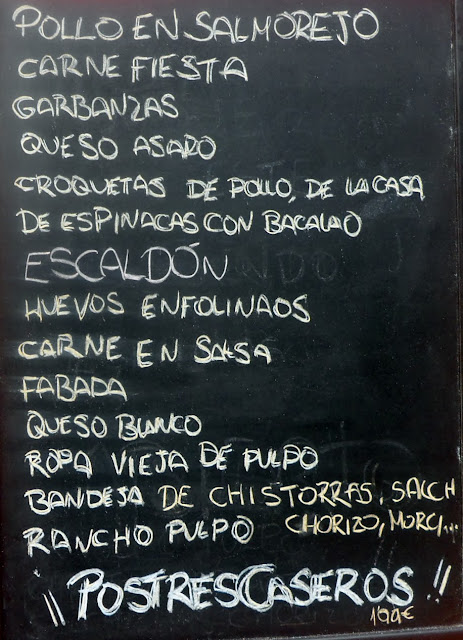 POLLO EN SALMOREJO
CARNE FIESTA
GARBANZAS
QUESO ASADO
CROQUETAS DE POLLO, DE LA CASA
DE ESPINACAS CON BACALAO
ESCALDÓN
HUEVOS ENFOLINAOS
CARNE EN SALSA
FABADA
QUESO BLANCO
ROPA VIEJA DE PULPO
BANDEJA DE CHISTORRAS, SALCH
CHORIZO, MORCI...
RANCHO PULPO
¡¡ POSTRES CASEROS !!